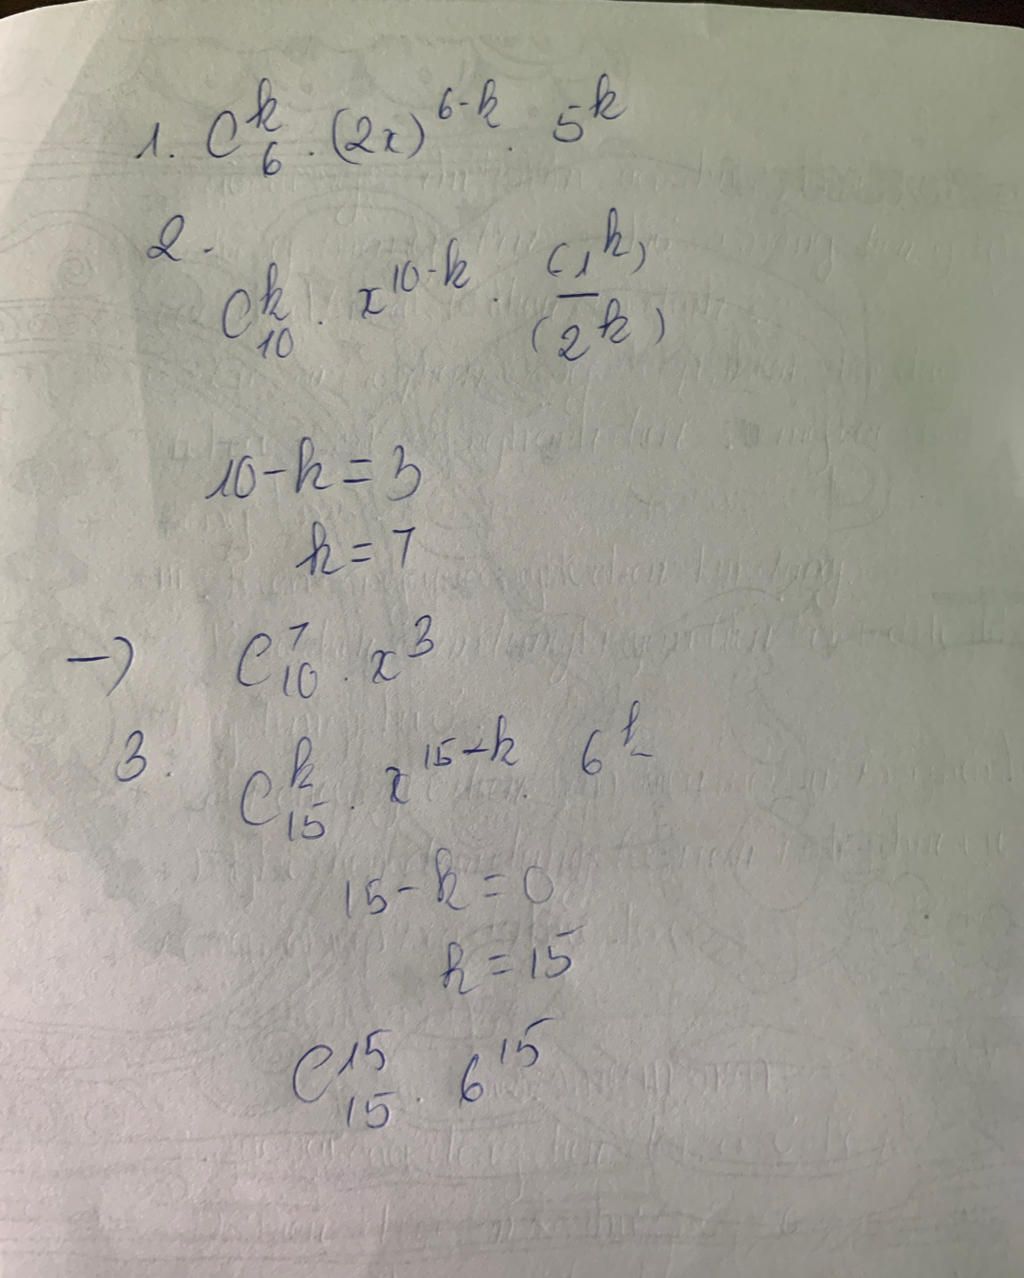 1. C₆ᵏ . (2x)⁶⁻ᵏ . 5ᵏ
2. C₁₀ᵏ . x¹⁰⁻ᵏ . (1ᵏ)/(2ᵏ)
10-k = 3
k = 7
→ C₁₀⁷ . x³
3. C₁₅ᵏ . x¹⁵⁻ᵏ . 6ᵏ
15-k = 0
k = 15
C₁₅¹⁵ . 6¹⁵